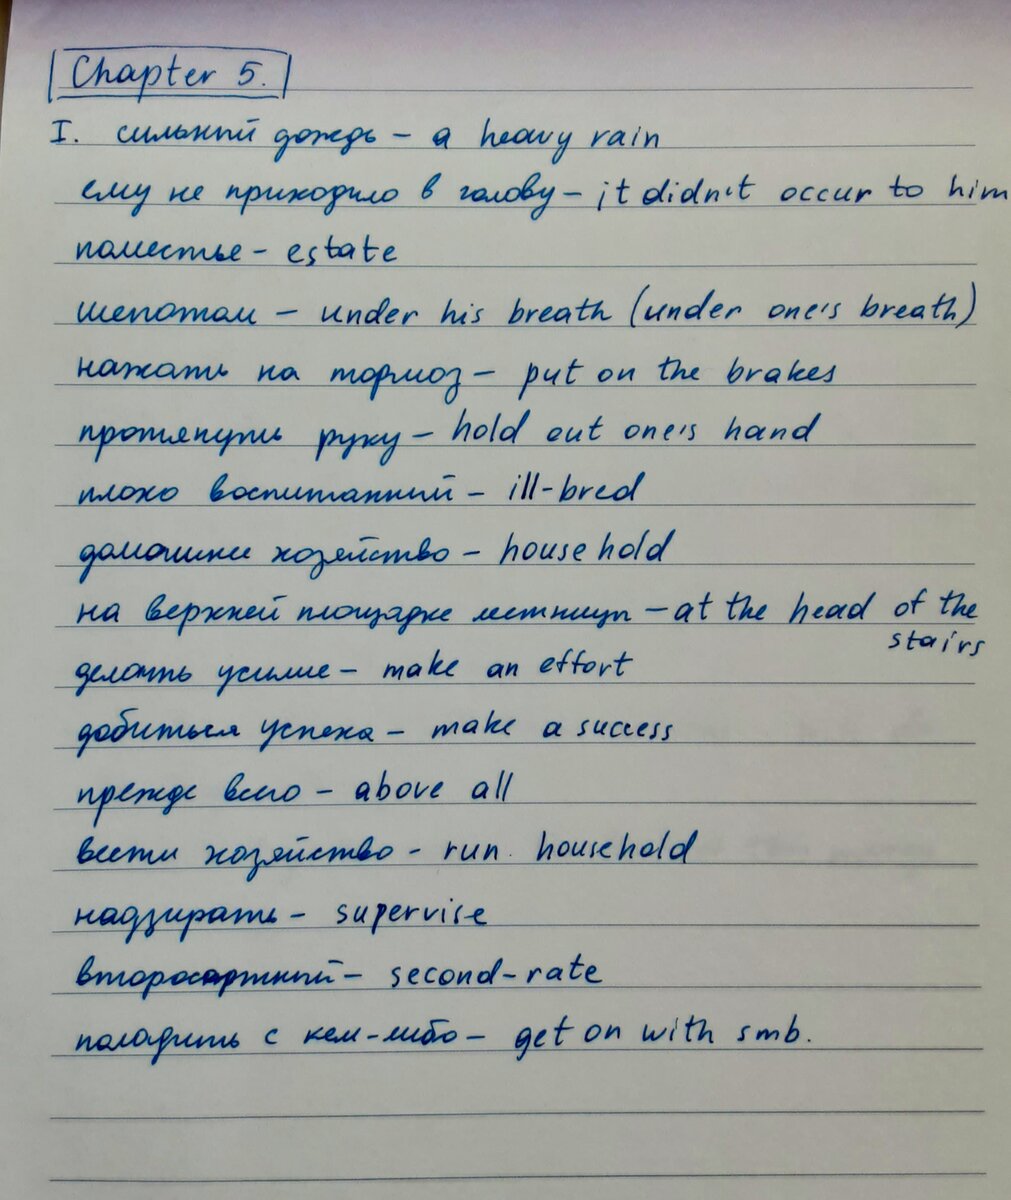 Chapter 5.
I. сильный дождь – a heavy rain
ему не приходило в голову – it didn't occur to him
поместье – estate
шепотом – under his breath (under one's breath)
нажать на тормоз – put on the brakes
протянуть руку – hold out one's hand
плохо воспитанный – ill-bred
домашнее хозяйство – household
на верхней площадке лестницы – at the head of the
stairs
делать усилие – make an effort
добиться успеха – make a success
прежде всего – above all
вести хозяйство – run household
надзирать – supervise
второсортный – second-rate
поладить с кем-либо – get on with smb.